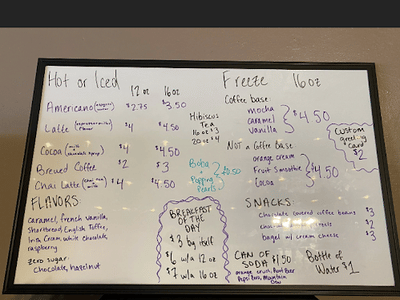 Hot or Iced
12 oz 16 oz
Americano $2.75 $3.50
Latte $4 $4.50
Cocoa $4 $4.50
Brewed Coffee $2 $3
Chai Latte $4 $4.50
FLAVORS
Caramel, French Vanilla,
Shortbread, English Toffee,
Irish Cream, White Chocolate,
raspberry
zero sugar
Chocolate, hazelnut
Hibiscus
Tea
16 oz $3
20 oz $4
Boba
+
Popping
Pearls
$0.50
BREAKFAST
OF THE
DAY
$3 by itself
$6 w/a 12 oz
$7 w/a 16 oz
Freeze 16 oz
Coffee base
mocha
caramel
vanilla
$4.50
Not a Coffee base
orange cream
Fruit Smoothie
Cocoa
$4.50
Custom
greeting
card
$2
SNACKS
chocolate covered coffee beans $3
$2
bagel w/ cream cheese $3
CAN OF
SODA $1.50
orange crush, Root Beer
Pepsi, Mountain
Dew
Bottle of
Water $1